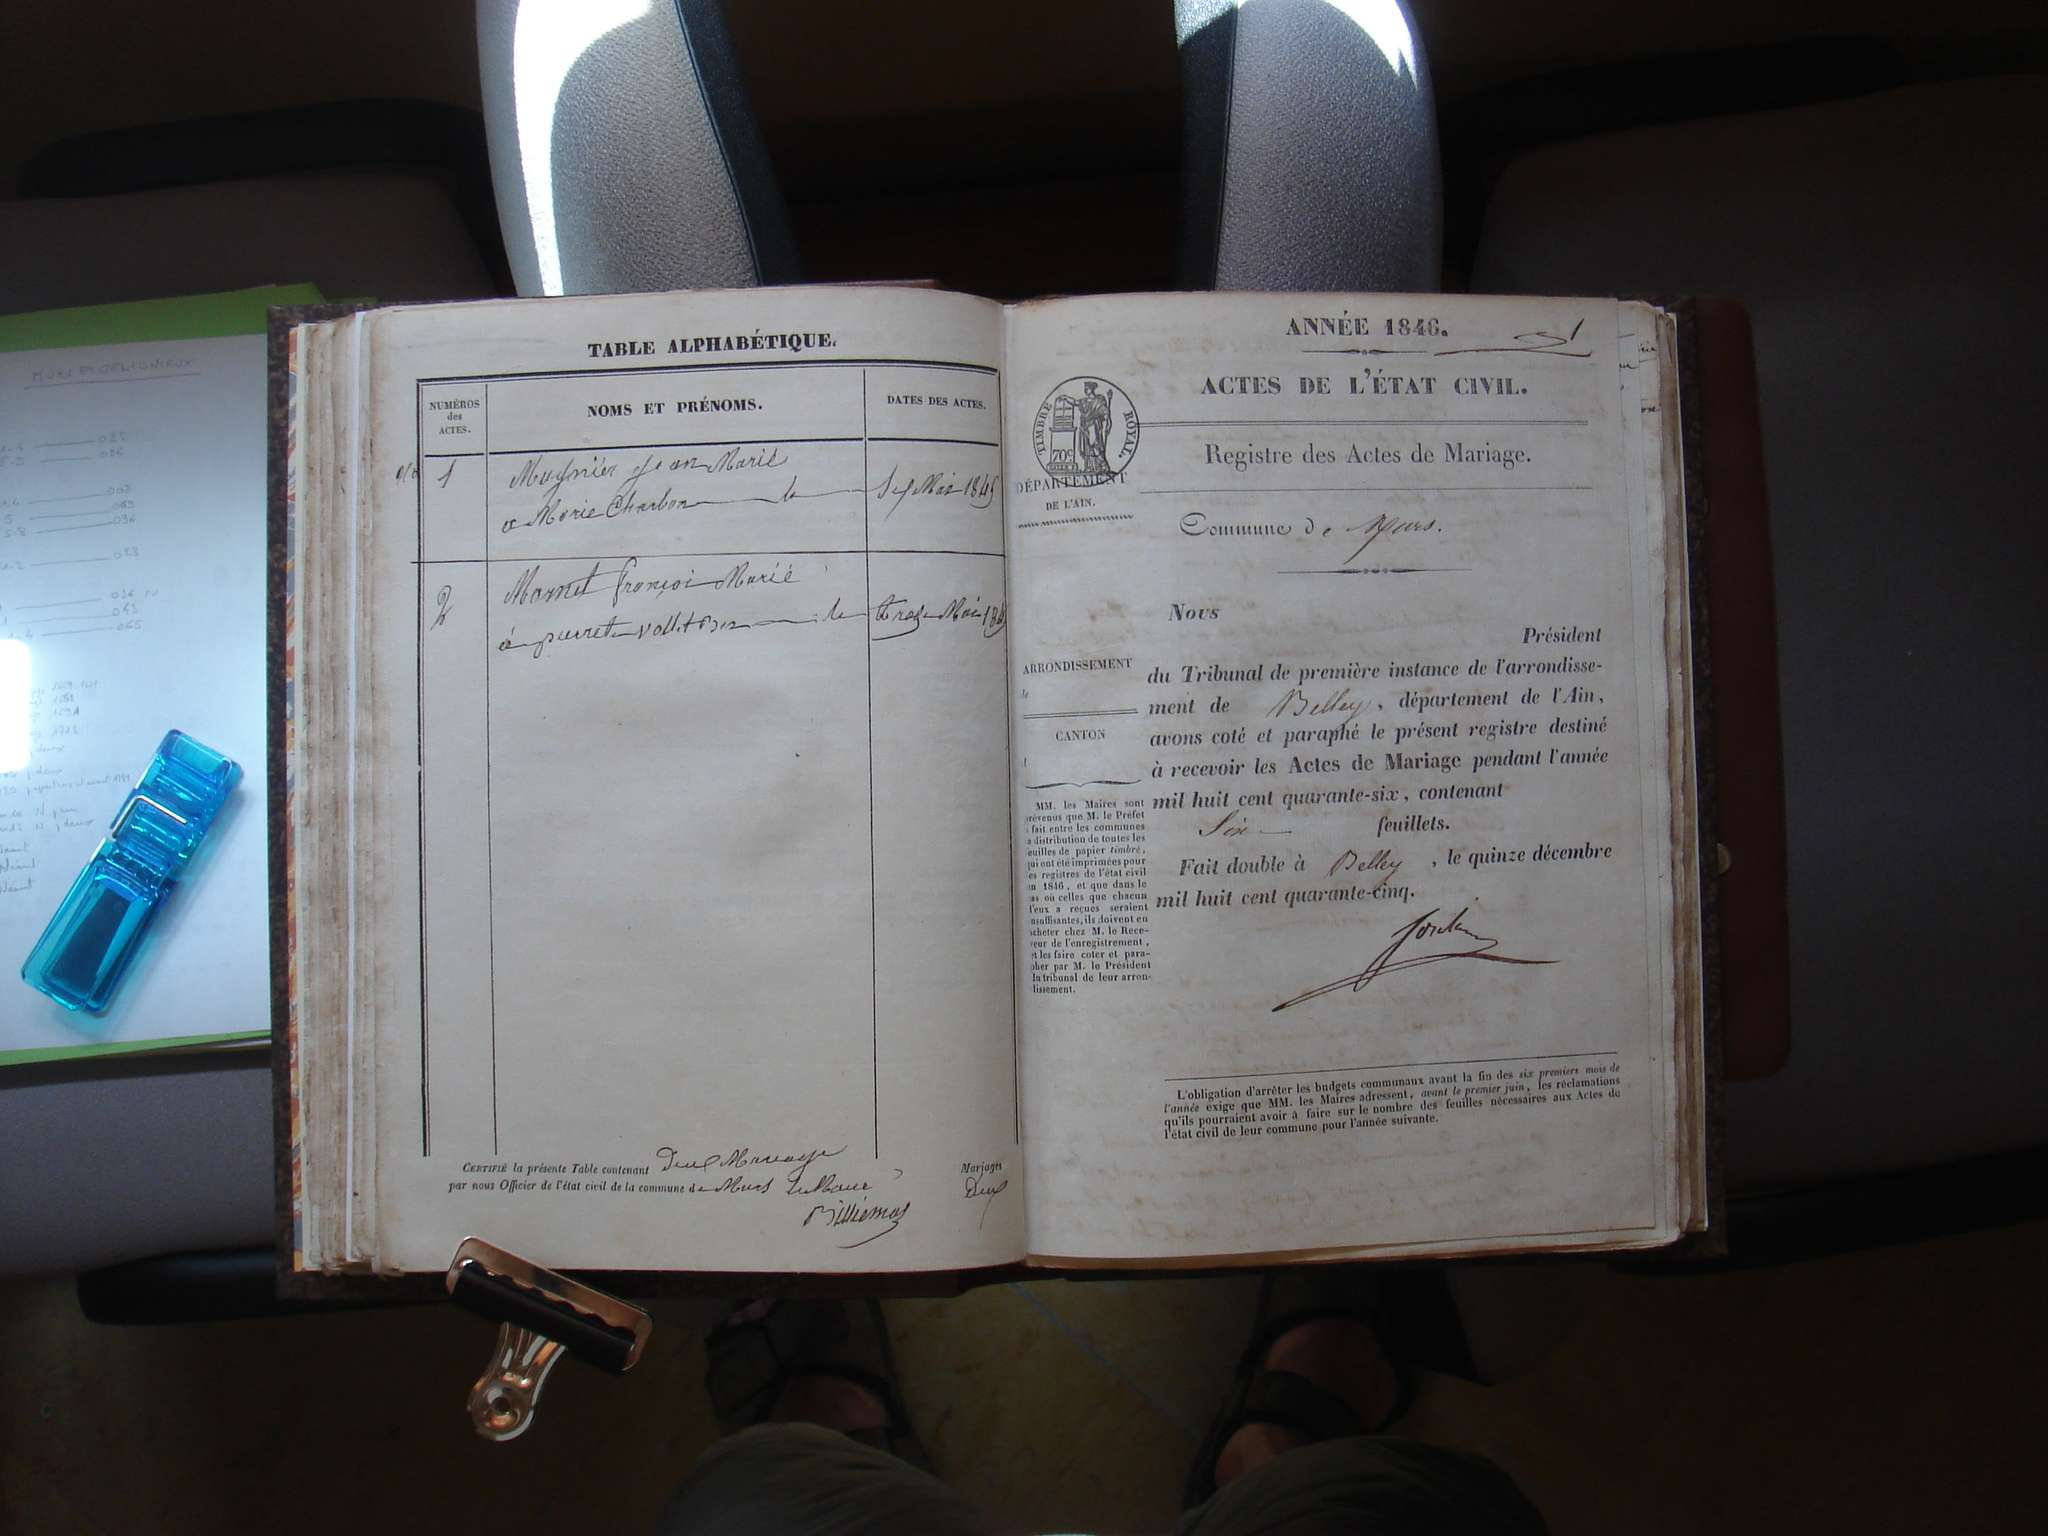 TABLE ALPHABÉTIQUE.
NUMÉROS
des
ACTES.
NOMS ET PRÉNOMS.
DATES DES ACTES.
1
Mugnier Jean Marie
a Marie Charbon le Mai 1845
2
François Marie
a le treize Mai
CERTIFIÉ la présente Table contenant Deux Mariage
Mariages
par nous Officier de l'état civil de la commune de Murs le Maire
Deux
Billiemas
ANNÉE 1846.
1
ACTES DE L'ÉTAT CIVIL.
TIMBRE ROYAL.
70c
Registre des Actes de Mariage.
DÉPARTEMENT
DE L'AIN.
Commune de Murs.
Nous
Président
du Tribunal de première instance de l'arrondisse-
ment de Belley, département de l'Ain,
avons coté et paraphé le présent registre destiné
à recevoir les Actes de Mariage pendant l'année
mil huit cent quarante-six, contenant
Six feuillets.
Fait double à Belley, le quinze décembre
mil huit cent quarante-cinq.
ARRONDISSEMENT
CANTON
MM. les Maires sont
prévenus que M. le Préfet
fait entre les communes
a distribution de toutes les
euilles de papier timbré,
qui ont été imprimées pour
es registres de l'état civil
n 1846, et que dans le
as où celles que chacun
d'eux a reçues seraient
insuffisantes, ils doivent en
acheter chez M. le Rece-
veur de l'enregistrement,
et les faire coter et para-
pher par M. le Président
du tribunal de leur arron-
dissement.
L'obligation d'arrêter les budgets communaux avant la fin des six premiers mois de
l'année exige que MM. les Maires adressent, avant le premier juin, les réclamations
qu'ils pourraient avoir à faire sur le nombre des feuilles nécessaires aux Actes de
l'état civil de leur commune pour l'année suivante.